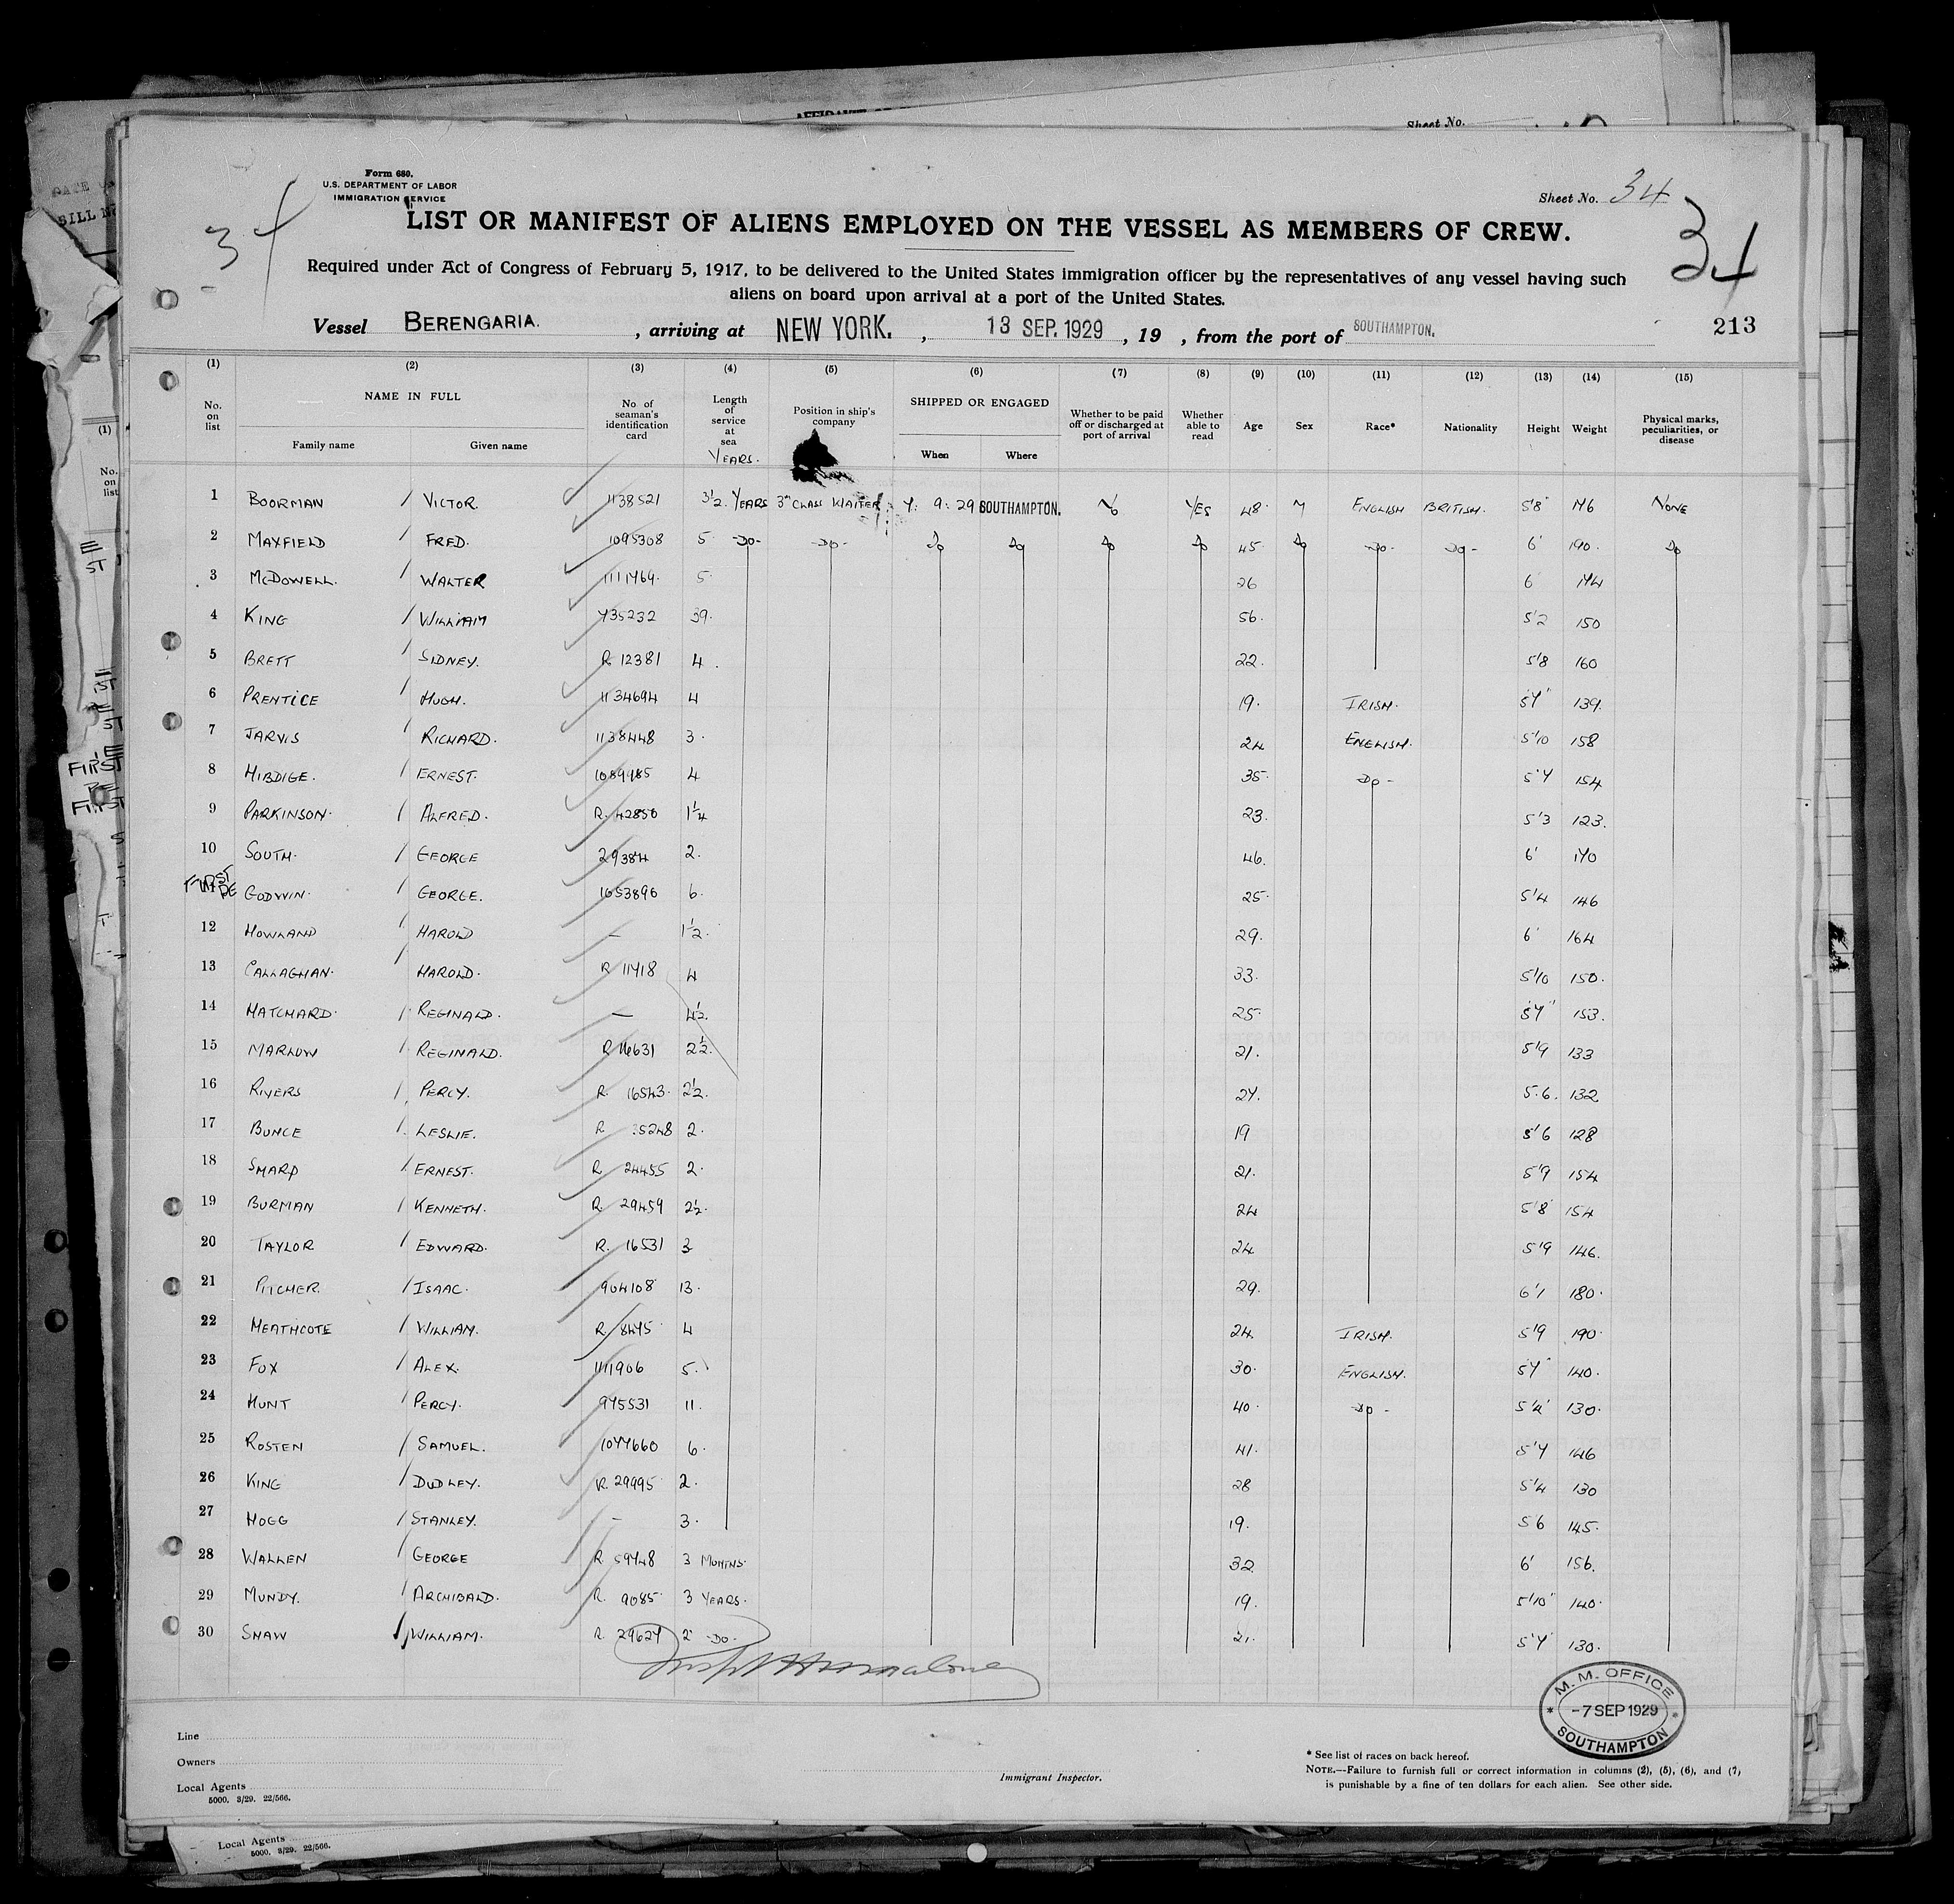 AFFIDAVIT
Sheet No.
DATE
BILL
Form 680.
U.S. DEPARTMENT OF LABOR
IMMIGRATION SERVICE
Sheet No. 34
34
34
LIST OR MANIFEST OF ALIENS EMPLOYED ON THE VESSEL AS MEMBERS OF CREW.
Required under Act of Congress of February 5, 1917, to be delivered to the United States immigration officer by the representatives of any vessel having such
aliens on board upon arrival at a port of the United States.
Vessel BERENGARIA. , arriving at NEW YORK. , 13 SEP. 1929 , 19 , from the port of SOUTHAMPTON. 213
(1) (2) (3) (4) (5) (6) (7) (8) (9) (10) (11) (12) (13) (14) (15)
No. on list NAME IN FULL Family name Given name No. of seaman's identification card Length of service at sea YEARS. Position in ship's company SHIPPED OR ENGAGED When Where Whether to be paid off or discharged at port of arrival Whether able to read Age Sex Race* Nationality Height Weight Physical marks, peculiarities, or disease
1 BOORMAN / VICTOR. 1138521 3½ YEARS 3rd CLASS WAITER 7: 9: 29 SOUTHAMPTON. No YES 48 M ENGLISH BRITISH. 5'8" 176 NONE
2 MAXFIELD / FRED. 1095308 5 -DO- -DO- Do Do Do Do 45 Do -DO- -DO- 6' 190 Do
3 McDOWELL. / WALTER 1111769 5 26 6' 174
4 KING / WILLIAM 735232 39. 56. 5'2 150
5 BRETT / SIDNEY. R 12381 4. 22. 5'8 160
6 PRENTICE / HUGH. 1134694 4 19. IRISH. 5'7" 139.
7 JARVIS / RICHARD. 1138448 3. 24 ENGLISH. 5'10 158
8 HIBDIGE. / ERNEST. 1089785 4 35. -Do- 5'7 154
9 PARKINSON. / ALFRED. R. 42850 1¼ 23. 5'3 123.
10 SOUTH. / GEORGE 29384 2. 46. 6' 170
FIRST GODWIN. / GEORGE. 1053896 6. 25. 5'4 146
12 HOWLAND / HAROLD - 1½. 29. 6' 164
13 CALLAGHAN. / HAROLD. R 11718 4 33. 5'10 150.
14 HATCHARD. / REGINALD. - 4½. 25 5'7" 153.
15 MARLOW / REGINALD. R 16631 2½. 21. 5'9 133
16 RIVERS / PERCY. R. 16543. 2½. 27. 5.6. 132
17 BUNCE / LESLIE. R 35248 2. 19 5'6 128
18 SHARP / ERNEST. R 24455 2. 21. 5'9 154
19 BURMAN / KENNETH. R 29459 2½. 24 5'8 154
20 TAYLOR / EDWARD. R. 16531 3 24. 5'9 146.
21 PITCHER. / ISAAC. 904108 13. 29. 6'1 180.
22 HEATHCOTE / WILLIAM. R 8475 4 24. IRISH. 5'9 190.
23 FOX / ALEX. 1111906 5. 30. ENGLISH. 5'7" 140.
24 HUNT / PERCY. 975531 11. 40. -Do- 5'4" 130.
25 ROSTEN / SAMUEL. 1077660 6. 41. 5'7 146
26 KING / DUDLEY. R. 29995 2. 28 5'4 130
27 HOGG / STANLEY. - 3. 19. 5 6 145.
28 WALLEN / GEORGE R. 59748 3 MONTHS. 32. 6' 156.
29 MUNDY. / ARCHIBALD. R. 9085 3 YEARS. 19. 5'10" 140.
30 SHAW / WILLIAM. R. 29627 2 -DO- 21. 5'7" 130.
M. M. OFFICE
-7 SEP 1929
SOUTHAMPTON
Line
Owners
Local Agents
5000. 3/29. 22/566.
Immigrant Inspector.
* See list of races on back hereof.
NOTE.—Failure to furnish full or correct information in columns (2), (5), (6), and (7)
is punishable by a fine of ten dollars for each alien. See other side.
Local Agents
5000. 3/29. 22/566.